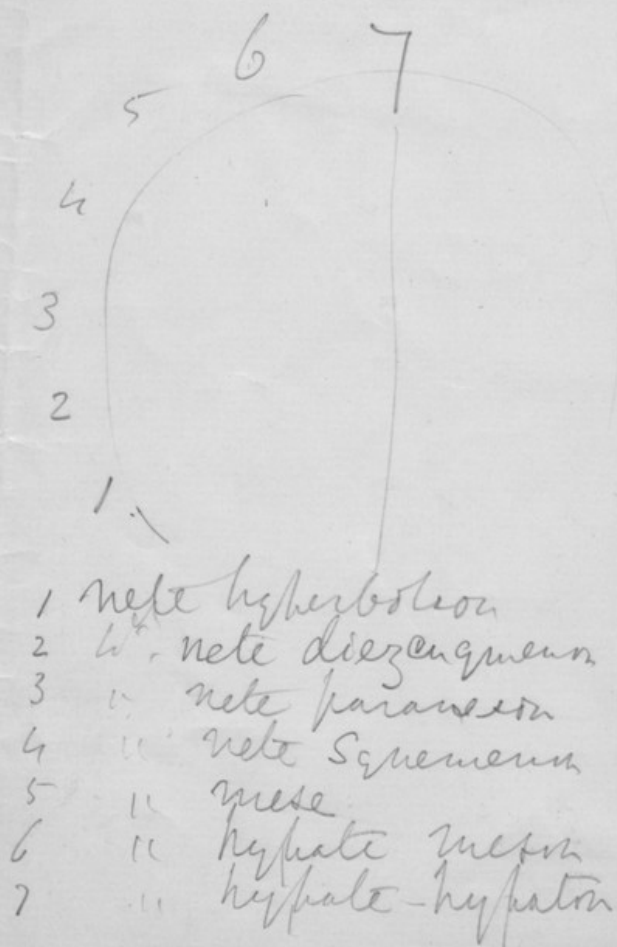 6 7
5
4
3
2
1
1 nete hyperboleon
2 nete diezeugmenon
3 " nete parameson
4 " nete Synemenon
5 " mese
6 " hypate meson
7 " hypate-hypaton